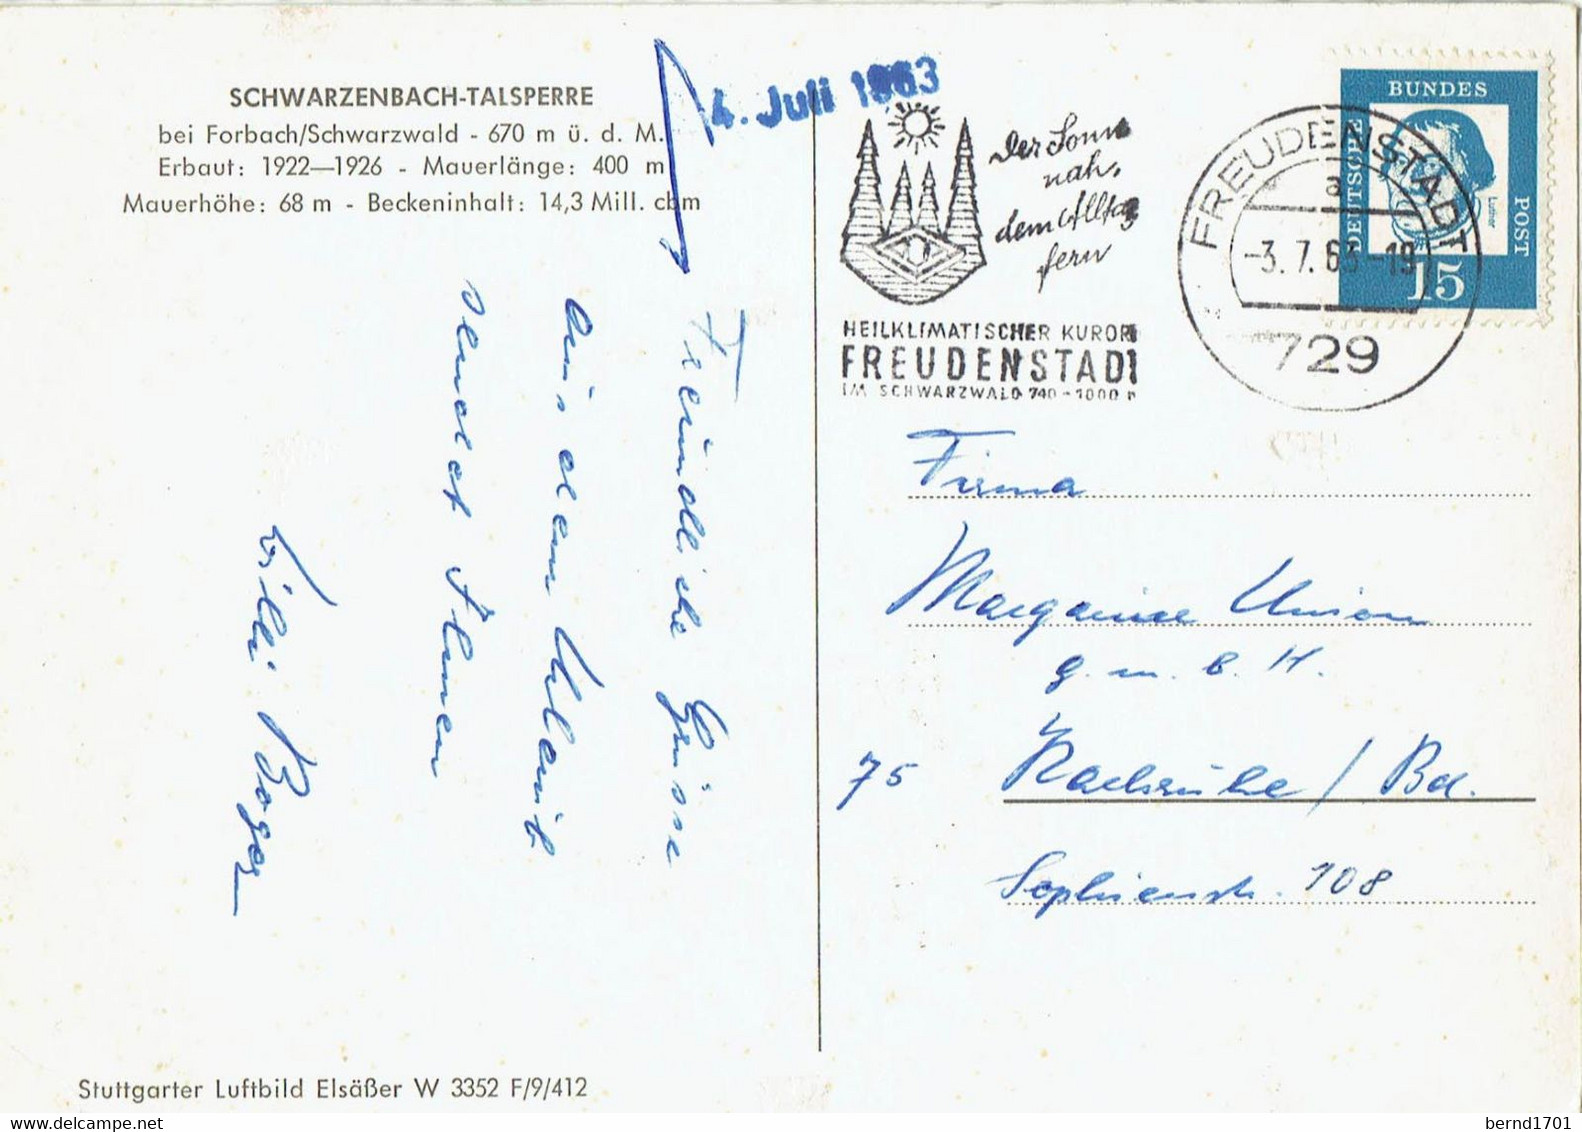 SCHWARZENBACH-TALSPERRE
bei Forbach/Schwarzwald - 670 m ü. d. M.
Erbaut: 1922—1926 - Mauerlänge: 400 m
Mauerhöhe: 68 m - Beckeninhalt: 14,3 Mill. cbm
4. Juli 1963
Freundliche Grüsse
aus dem Urlaub
sendet Ihnen
Willi Boger
Stuttgarter Luftbild Elsäßer W 3352 F/9/412
Der Sonne
nah,
dem Alltag
fern
HEILKLIMATISCHER KURORT
FREUDENSTADT
IM SCHWARZWALD 740-1000 m
FREUDENSTADT
a
-3.7.63-19
729
DEUTSCHE
BUNDES
POST
Luther
15
Firma
Margarine Union
g.m.b.H.
75 Karlsruhe / Bd.
Sophienstr. 108
bernd1701